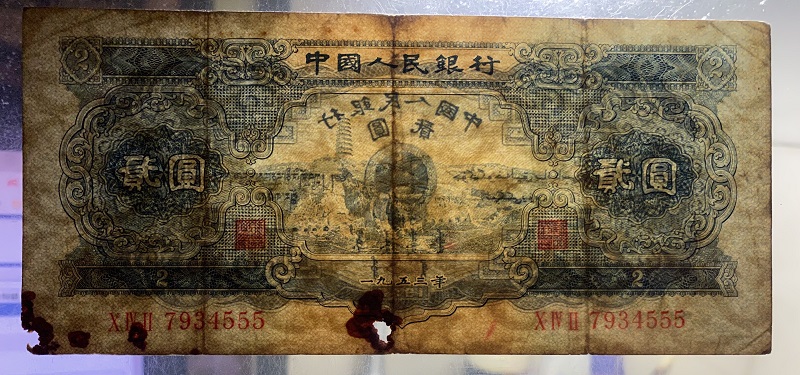 2 中國人民銀行 2
中國人民銀行
貳圓
貳圓 貳圓
2 一九五三年 2
X IV II 7934555 X IV II 7934555